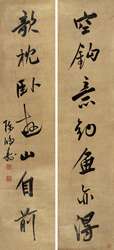 空鉤意釣魚亦得
欹枕卧遊山自前
陳鴻壽